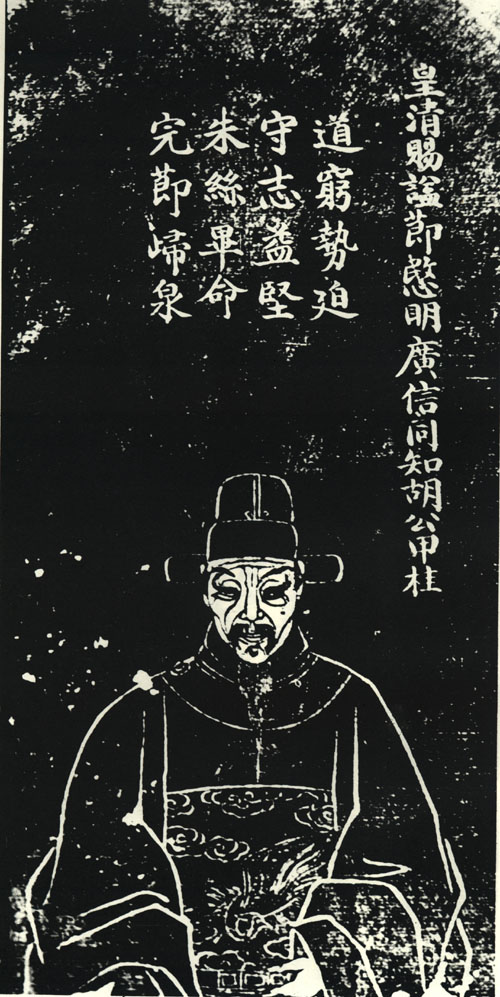 皇清賜謚節愍明廣信同知胡公甲桂
道窮勢迫
守志益堅
朱絲畢命
完節歸泉